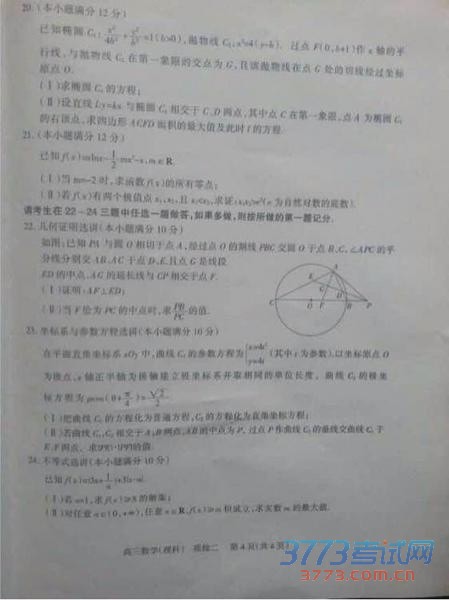 20.(本小题满分12分)
已知椭圆C₁:x²/4b²+y²/b²=1(b>0),抛物线C₂:x²=4(y-b). 过点F(0,b+1)作x轴的平
行线,与抛物线C₂在第一象限的交点为G,且该抛物线在点G处的切线经过坐标
原点O.
(Ⅰ)求椭圆C₁的方程;
(Ⅱ)设直线l:y=kx与椭圆C₁相交于C、D两点,其中点C在第一象限,点A为椭圆C₁
的右顶点,求四边形ACFD面积的最大值及此时l的方程.
21.(本小题满分12分)
已知f(x)=xlnx-1/2mx²-x,m∈R.
(Ⅰ)当m=-2时,求函数f(x)的所有零点;
(Ⅱ)若f(x)有两个极值点x₁,x₂,且x₁<x₂,求证:x₁x₂>e²(e为自然对数的底数).
请考生在22-24三题中任选一题做答,如果多做,则按所做的第一题记分.
22.几何证明选讲(本小题满分10分)
如图:已知PA与圆O相切于点A,经过点O的割线PBC交圆O于点B、C,∠APC的平
分线分别交AB、AC于点D、E,且点G是线段
ED的中点,AG的延长线与CP相交于点F.
(Ⅰ)证明:AF⊥ED;
(Ⅱ)当F恰为PC的中点时,求PB/PC的值.
A
E
G
D
C
O
F
B
P
23.坐标系与参数方程选讲(本小题满分10分)
在平面直角坐标系xOy中,曲线C₁的参数方程为{x=4t² y=4t(其中t为参数).以坐标原点O
为极点,x轴正半轴为极轴建立极坐标系并取相同的单位长度, 曲线C₂的极坐
标方程为ρcos(θ+π/4)=√2/2.
(Ⅰ)把曲线C₁的方程化为普通方程,C₂的方程化为直角坐标方程;
(Ⅱ)若曲线C₁,C₂相交于A,B两点,AB的中点为P,过点P作曲线C₂的垂线交曲线C₁于
E,F两点,求|PE|·|PF|的值.
24.不等式选讲(本小题满分10分)
(Ⅰ)若a=1,求f(x)≥8的解集;
(Ⅱ)对任意a∈(0,+∞),任意x∈R,f(x)≥m恒成立,求实数m的最大值.
高三数学(理科) 质检二 第4页(共4页)
3773考试网
3773.com.cn